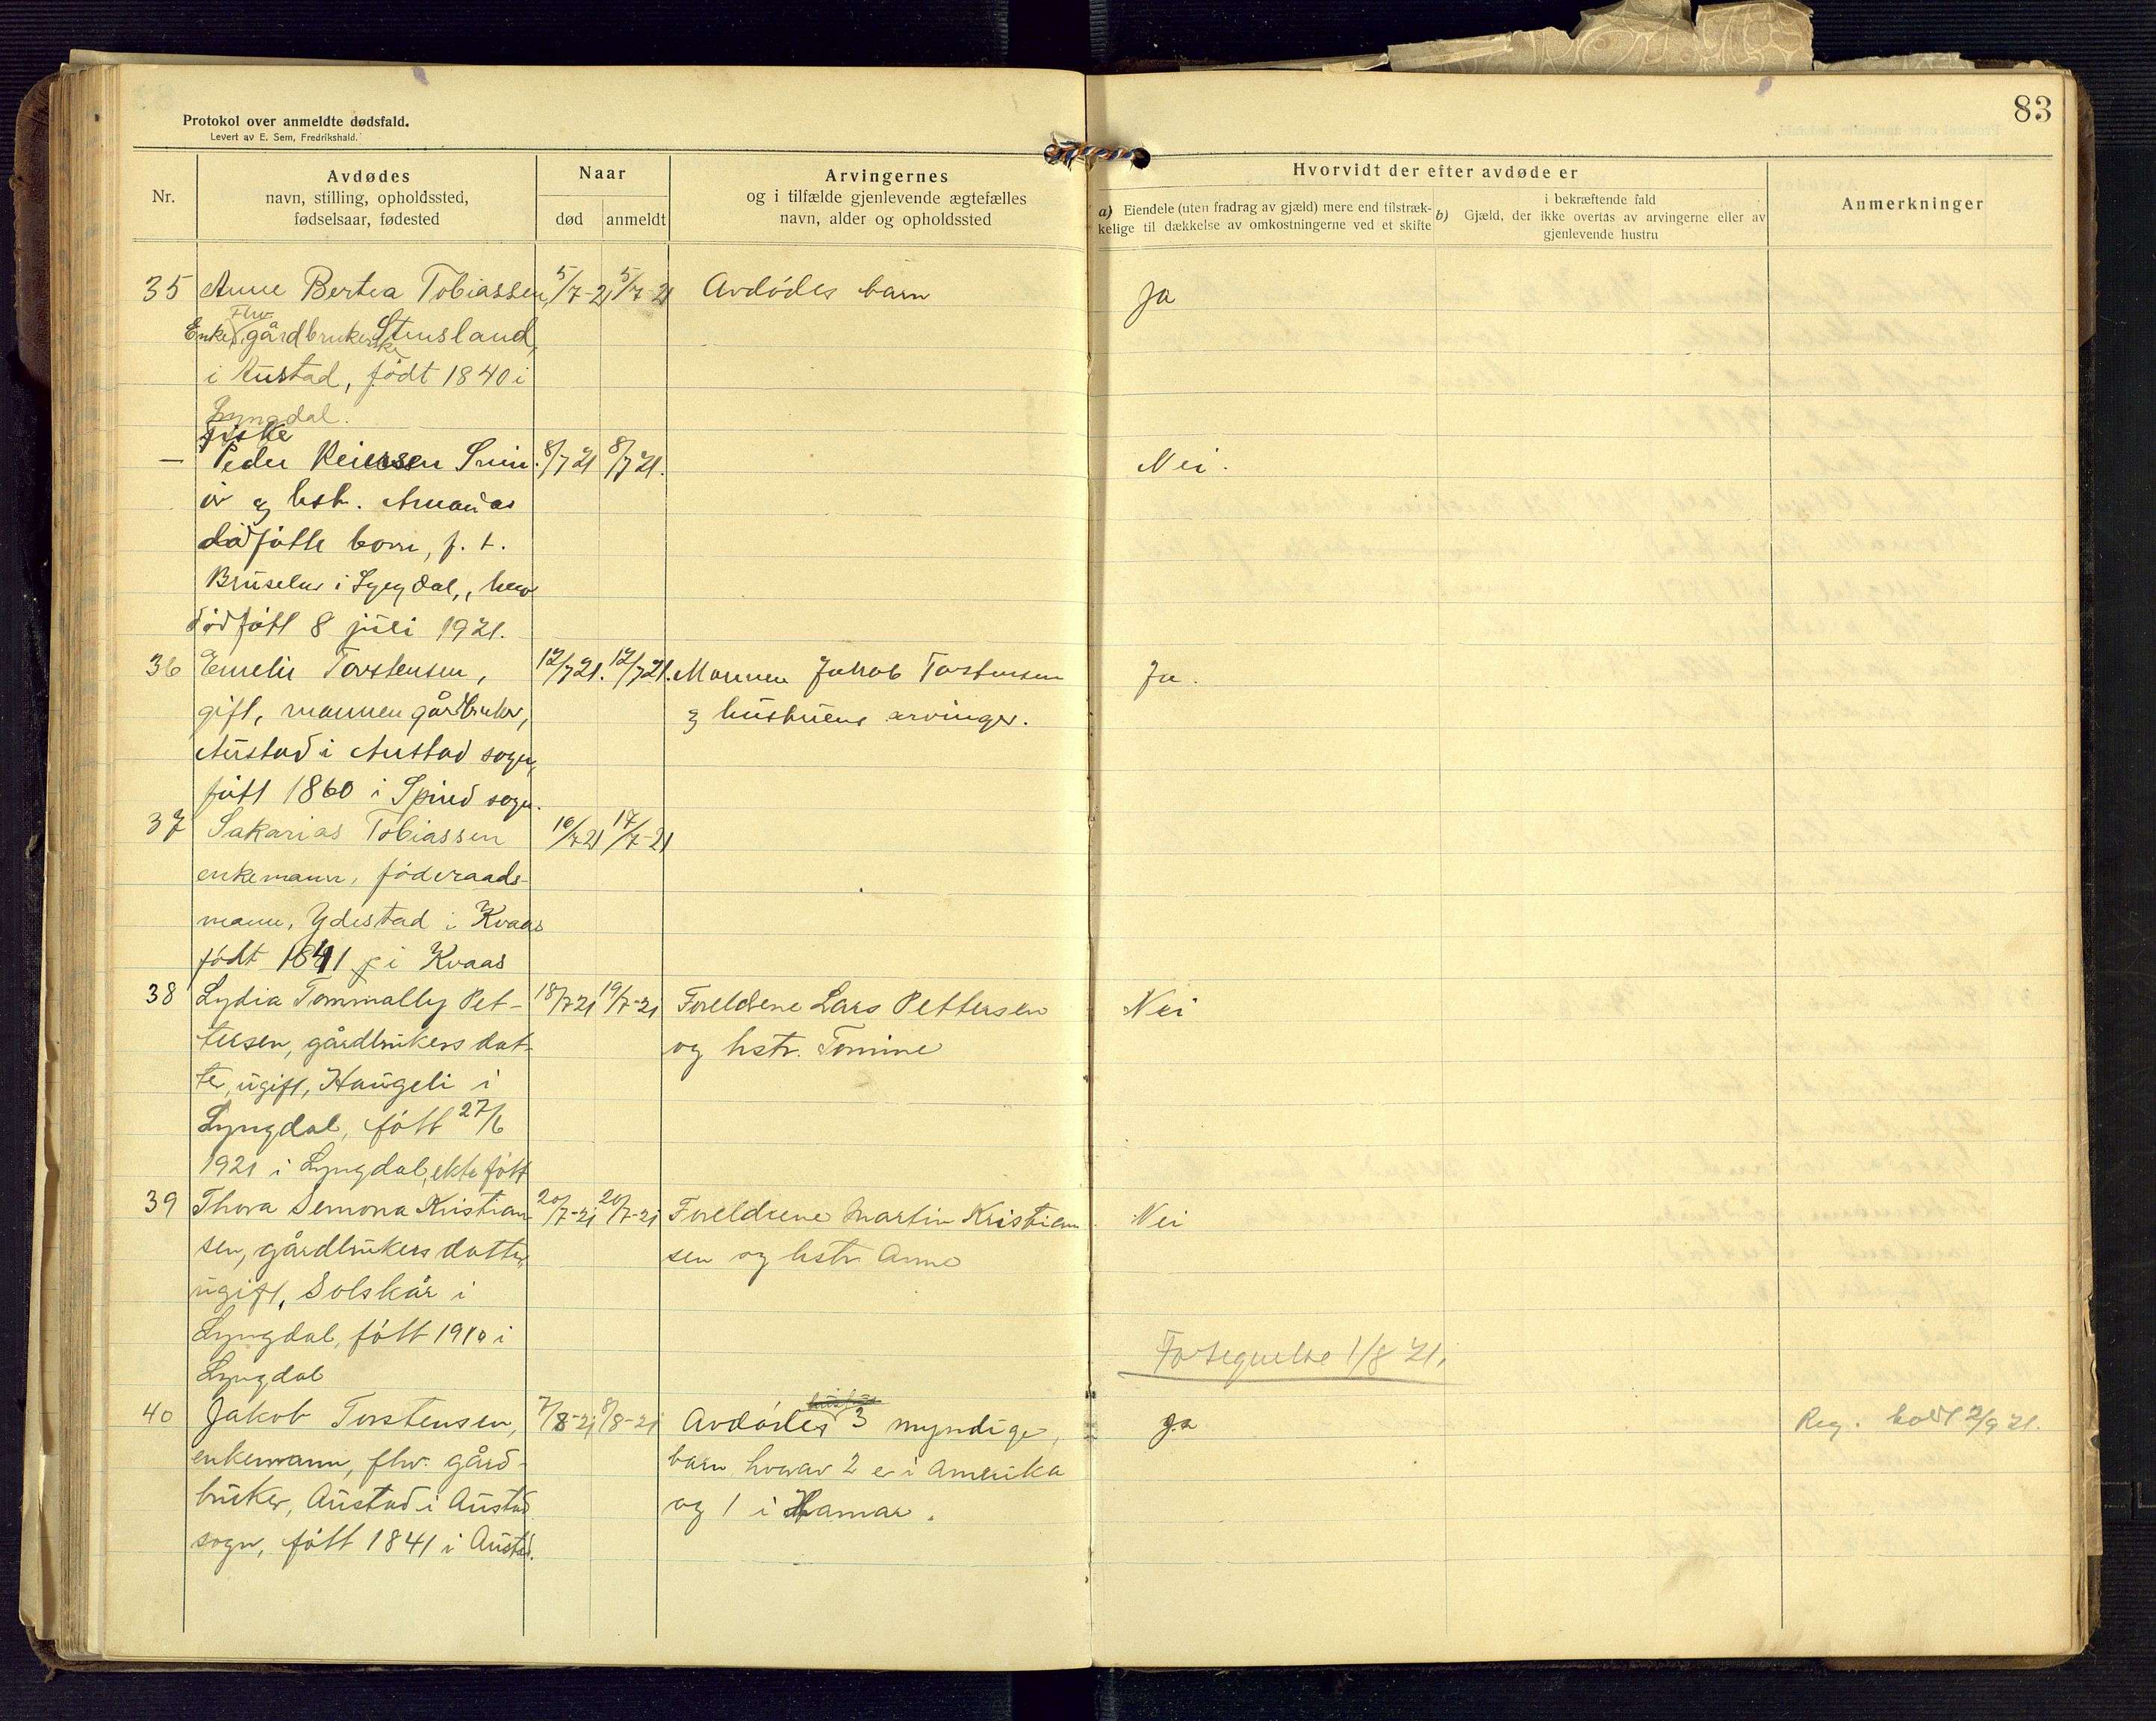 83
Protokol over anmeldte dødsfald.
Levert av E. Sem, Fredrikshald.
Nr.
Avdødes
navn, stilling, opholdssted,
fødselsaar, fødested
Naar
død
anmeldt
Arvingernes
og i tilfælde gjenlevende ægtefælles
navn, alder og opholdssted
Hvorvidt der efter avdøde er
a) Eiendele (uten fradrag av gjæld) mere end tilstræk-
kelige til dækkelse av omkostningerne ved et skifte
i bekræftende fald
b) Gjæld, der ikke overtas av arvingerne eller av
gjenlevende hustru
Anmerkninger
35 Anne Bertea Tobiassen, 5/7-21 5/7-21 Avdødes barn Ja
Fhv.
Enke, gårdbrukerske Stensland,
i Austad, født 1840 i
Lyngdal.
fiske
— Peder Reiersen 8/7 21 8/7 21. Nei.
og hstr. Amandas
dødfødte barn, f. t.
i Lyngdal,
dødfått 8 juli 1921.
36 Emelie Torstensen, 12/7 21. 12/7 21. Mannen Jakob Torstensen Ja.
gift, mannen gårdbruker, og hustruens arvinger.
Austad i Austad sogn,
fått 1860 i Spind sogn.
37 Sakarias Tobiassen 16/7-21 17/7-21
enkemann, føderaads-
mann, Ydestad i Kvaas
født 1841 i Kvaas
38 Lydia Tommally Pet- 18/7-21 19/7-21 Foreldrene Lars Pettersen Nei
tersen, gårdbrukers dat- og hstr. Tomine
ter, ugift, Haugeli i
Lyngdal, fått 27/6
1921 i Lyngdal, ekte fått
39 Thora Semona Kristian- 20/7-21 20/7-21 Foreldrene Martin Kristian- Nei
sen, gårdbrukers datter, sen og hstr Anne
ugift, Solskår i
Lyngdal, fått 1910 i
Lyngdal
1/8 21.
40 Jakob Torstensen, 7/8-21 8/8-21 Avdødes 3 myndige, ja Reg. holdt 2/9 21.
enkemann, fhv. gård- barn, hvorav 2 er i Amerika
bruker, Austad i Austad og 1 i Hamar.
sogn, fått 1841 i Austad.